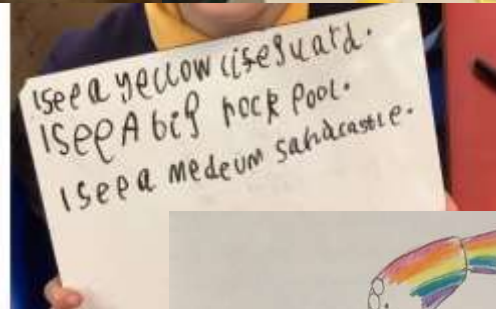 I see a yellow lifeguard.
I see A big rock pool.
I see a medeum sandcastle.